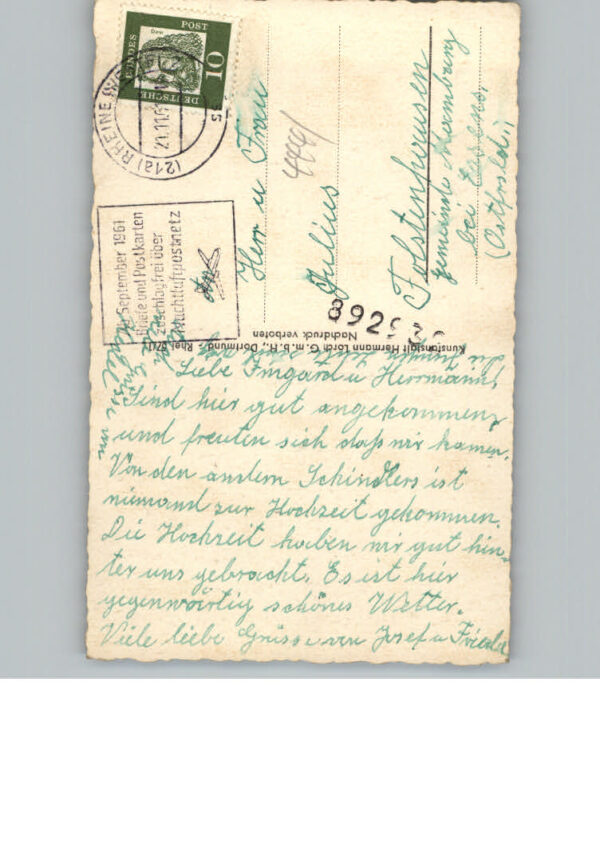 DEUTSCHE
BUNDES
POST
10
(21a) RHEINE (WESTF)
21.11.
September 1961
Briefe und Postkarten
zuschlagfrei über
Nachtluftpostnetz
Herrn u Frau
Julius
Folstenhausen
gemeinde
bei
(Ostfrsld.)
89252
Kunstanstalt Hermann Lorch G.m.b.H., Dortmund - Rhei
Nachdruck verboten
Liebe Irmgard u Herrmann,
Sind hier gut angekommen,
und freuten sich daß wir kamen.
Von den andern Schindlers ist
niemand zur Hochzeit gekommen.
Die Hochzeit haben wir gut hin-
ter uns gebracht. Es ist hier
gegenwärtig schönes Wetter.
Viele liebe Grüsse von Josef u Frieda